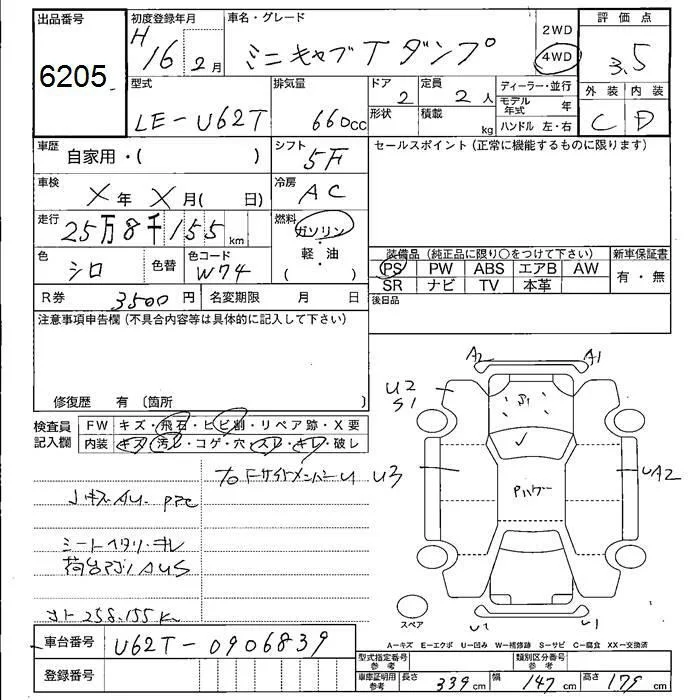 出品番号 初度登録年月 車名・グレード 評価点
6205 H16 2月 ミニキャブTダンプ 2WD 4WD 3.5
型式 排気量 ドア 定員 ディーラー・並行 外装 内装
LE-U62T 660cc 2 2人 モデル年式 年 C D
形状 積載 kg ハンドル 左・右
車歴 自家用・( ) シフト 5F セールスポイント(正常に機能するものに限ります)
車検 X年X月( 日) 冷房 AC
走行 25万8千155km 燃料 ガソリン・軽・油 ( )
色 シロ 色替 色コード W74
装備品(純正品に限り○をつけて下さい) 新車保証書
PS PW ABS エアB AW 有・無
SR ナビ TV 本革
R券 3500円 名変期限 月 日 後日品
注意事項申告欄(不具合内容等は具体的に記入して下さい)
修復歴 有〔箇所 〕
検査員記入欄 FW キズ・飛石・ヒビ割・リペア跡・X要
内装 キズ・汚レ・コゲ・穴・スレ・キレ・破レ
A2 A1
U2
S1
S1
U3
UA2
Pハワー
シートヘタリ・キレ
258,155K
スペア
A-キズ E-エクボ U-凹み W-補修跡 S-サビ C-腐食 XX-交換済
車台番号 U62T-0906839
型式指定番号 参考 類別区分番号 参考
登録番号 車庫証明用 参考 長さ 339cm 幅 147cm 高さ 179cm